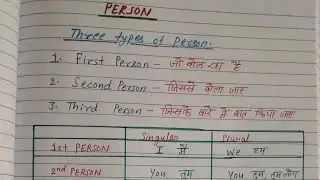 PERSON
Three types of Person.
1. First Person - जो बोल रहा है
2. Second Person - जिससे बोला जाए
3. Third Person - जिसके बारे में बात किया जाए
Singular Plural
1st PERSON I मैं We हम
2nd PERSON You तुम You तुम, तुम लोग